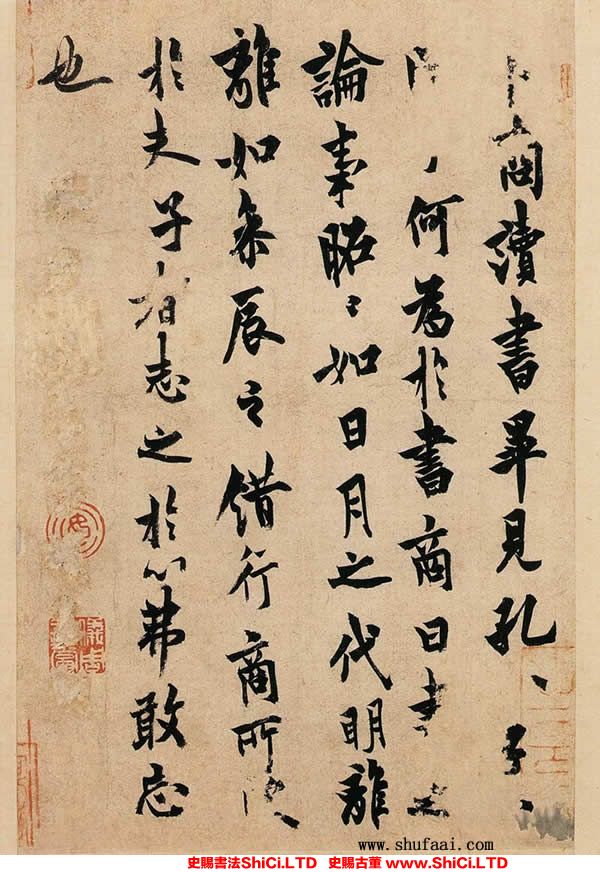 卜商讀書畢見孔〻子〻
問何為於書商曰書之
論事昭〻如日月之代明離
離如參辰之錯行商所受
於夫子者志之於心弗敢忘
也
www.shufaai.com
史賜書法ShiCi.LTD 史賜古董 www.ShiCi.LTD